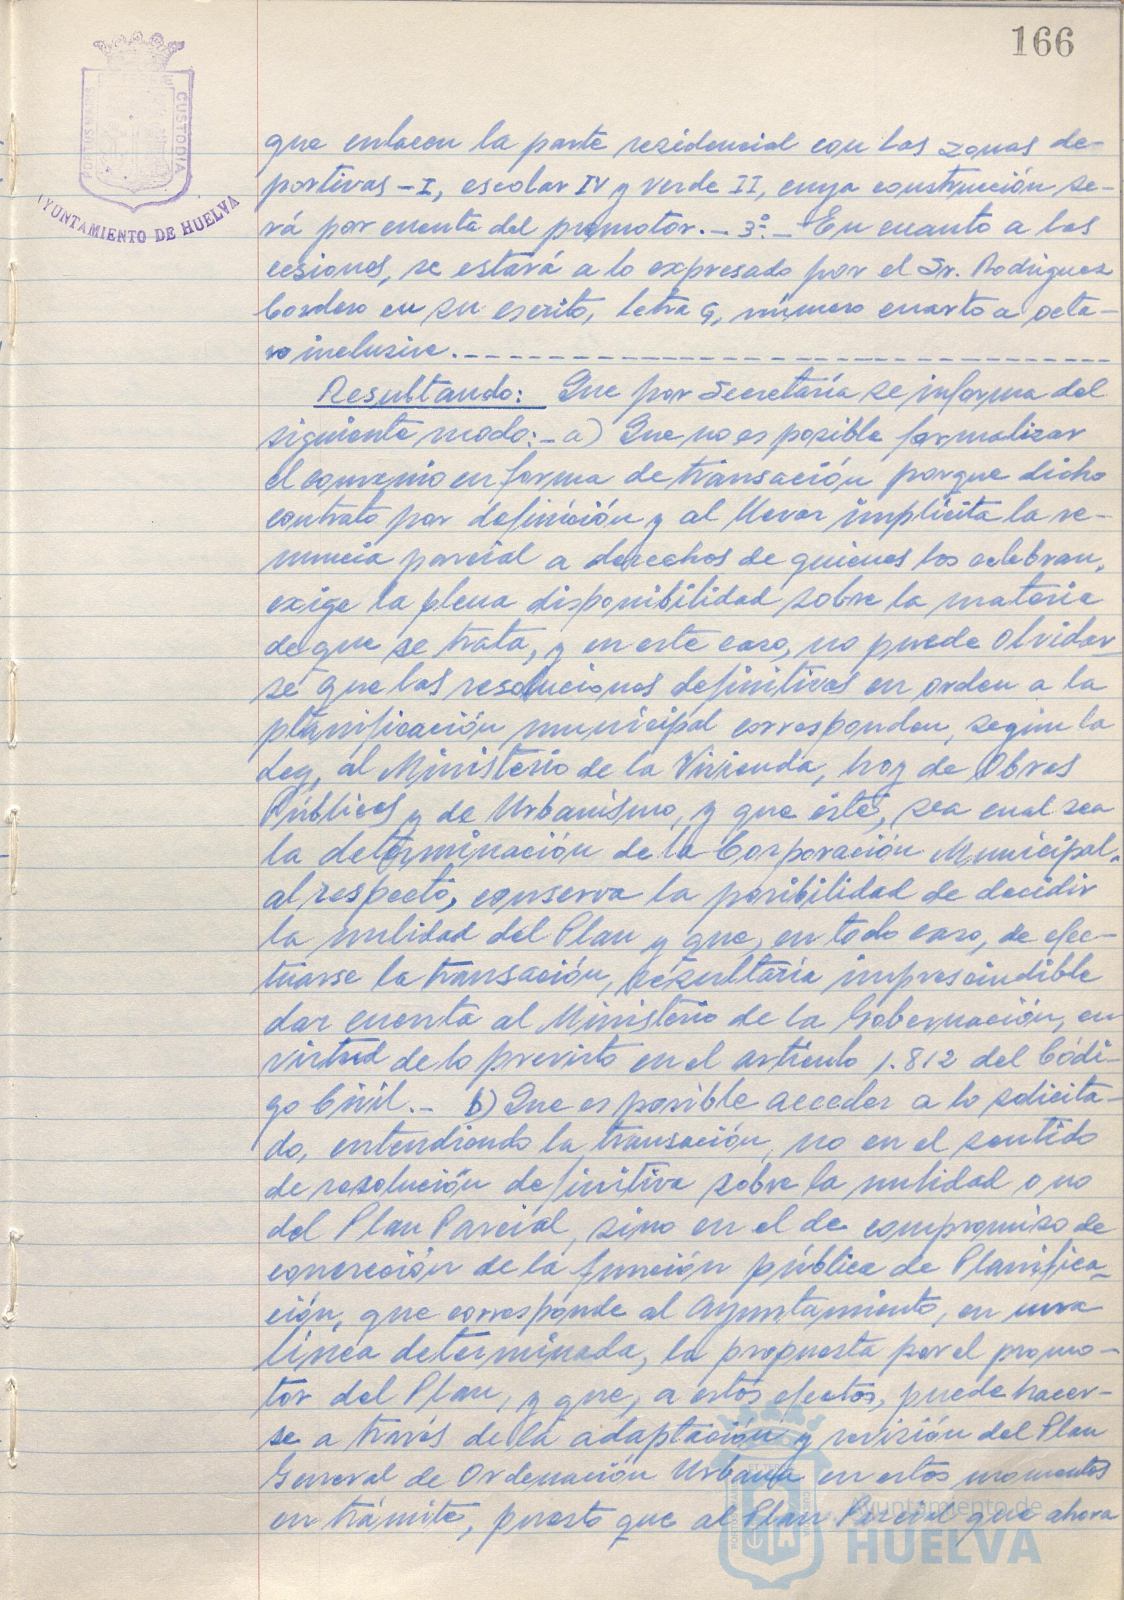 166
PORTUS MARIS CUSTODIA
AYUNTAMIENTO DE HUELVA
que enlacen la parte residencial con las zonas de-
portivas - I, escolar IV y verde II, cuya construcción se-
rá por cuenta del promotor.- 3º.- En cuanto a las
cesiones, se estará a lo expresado por el Sr. Rodríguez
Cordero en su escrito, letra G, número cuarto a octa-
vo inclusive.
Resultando: Que por Secretaría se informa del
siguiente modo:- a) Que no es posible formalizar
el convenio en forma de transación porque dicho
contrato por definición y al llevar implícita la re-
nuncia parcial a derechos de quienes los celebran,
exige la plena disponibilidad sobre la materia
de que se trata, y en este caso, no puede olvidar
se que las resoluciones definitivas en orden a la
planificación municipal corresponden, según la
Ley, al Ministerio de la Vivienda, hoy de Obras
Públicas y de Urbanismo, y que éste, sea cual sea
la determinación de la Corporación Municipal,
al respecto, conserva la posibilidad de decidir
la nulidad del Plan y que, en todo caso, de efec-
tuarse la transación, resultaría imprescindible
dar cuenta al Ministerio de la Gobernación, en
virtud de lo previsto en el artículo 1.812 del Códi-
go Civil.- b) Que es posible acceder a lo solicita-
do, entendiendo la transación, no en el sentido
de resolución definitiva sobre la nulidad o no
del Plan Parcial, sino en el de compromiso de
concreción de la función pública de Planifica-
ción, que corresponde al Ayuntamiento, en una
línea determinada, la propuesta por el promo-
tor del Plan, y que, a estos efectos, puede hacer-
se a través de la adaptación y revisión del Plan
General de Ordenación Urbana en estos momentos
en trámite, puesto que al Plan Parcial que ahora
Ayuntamiento de
HUELVA